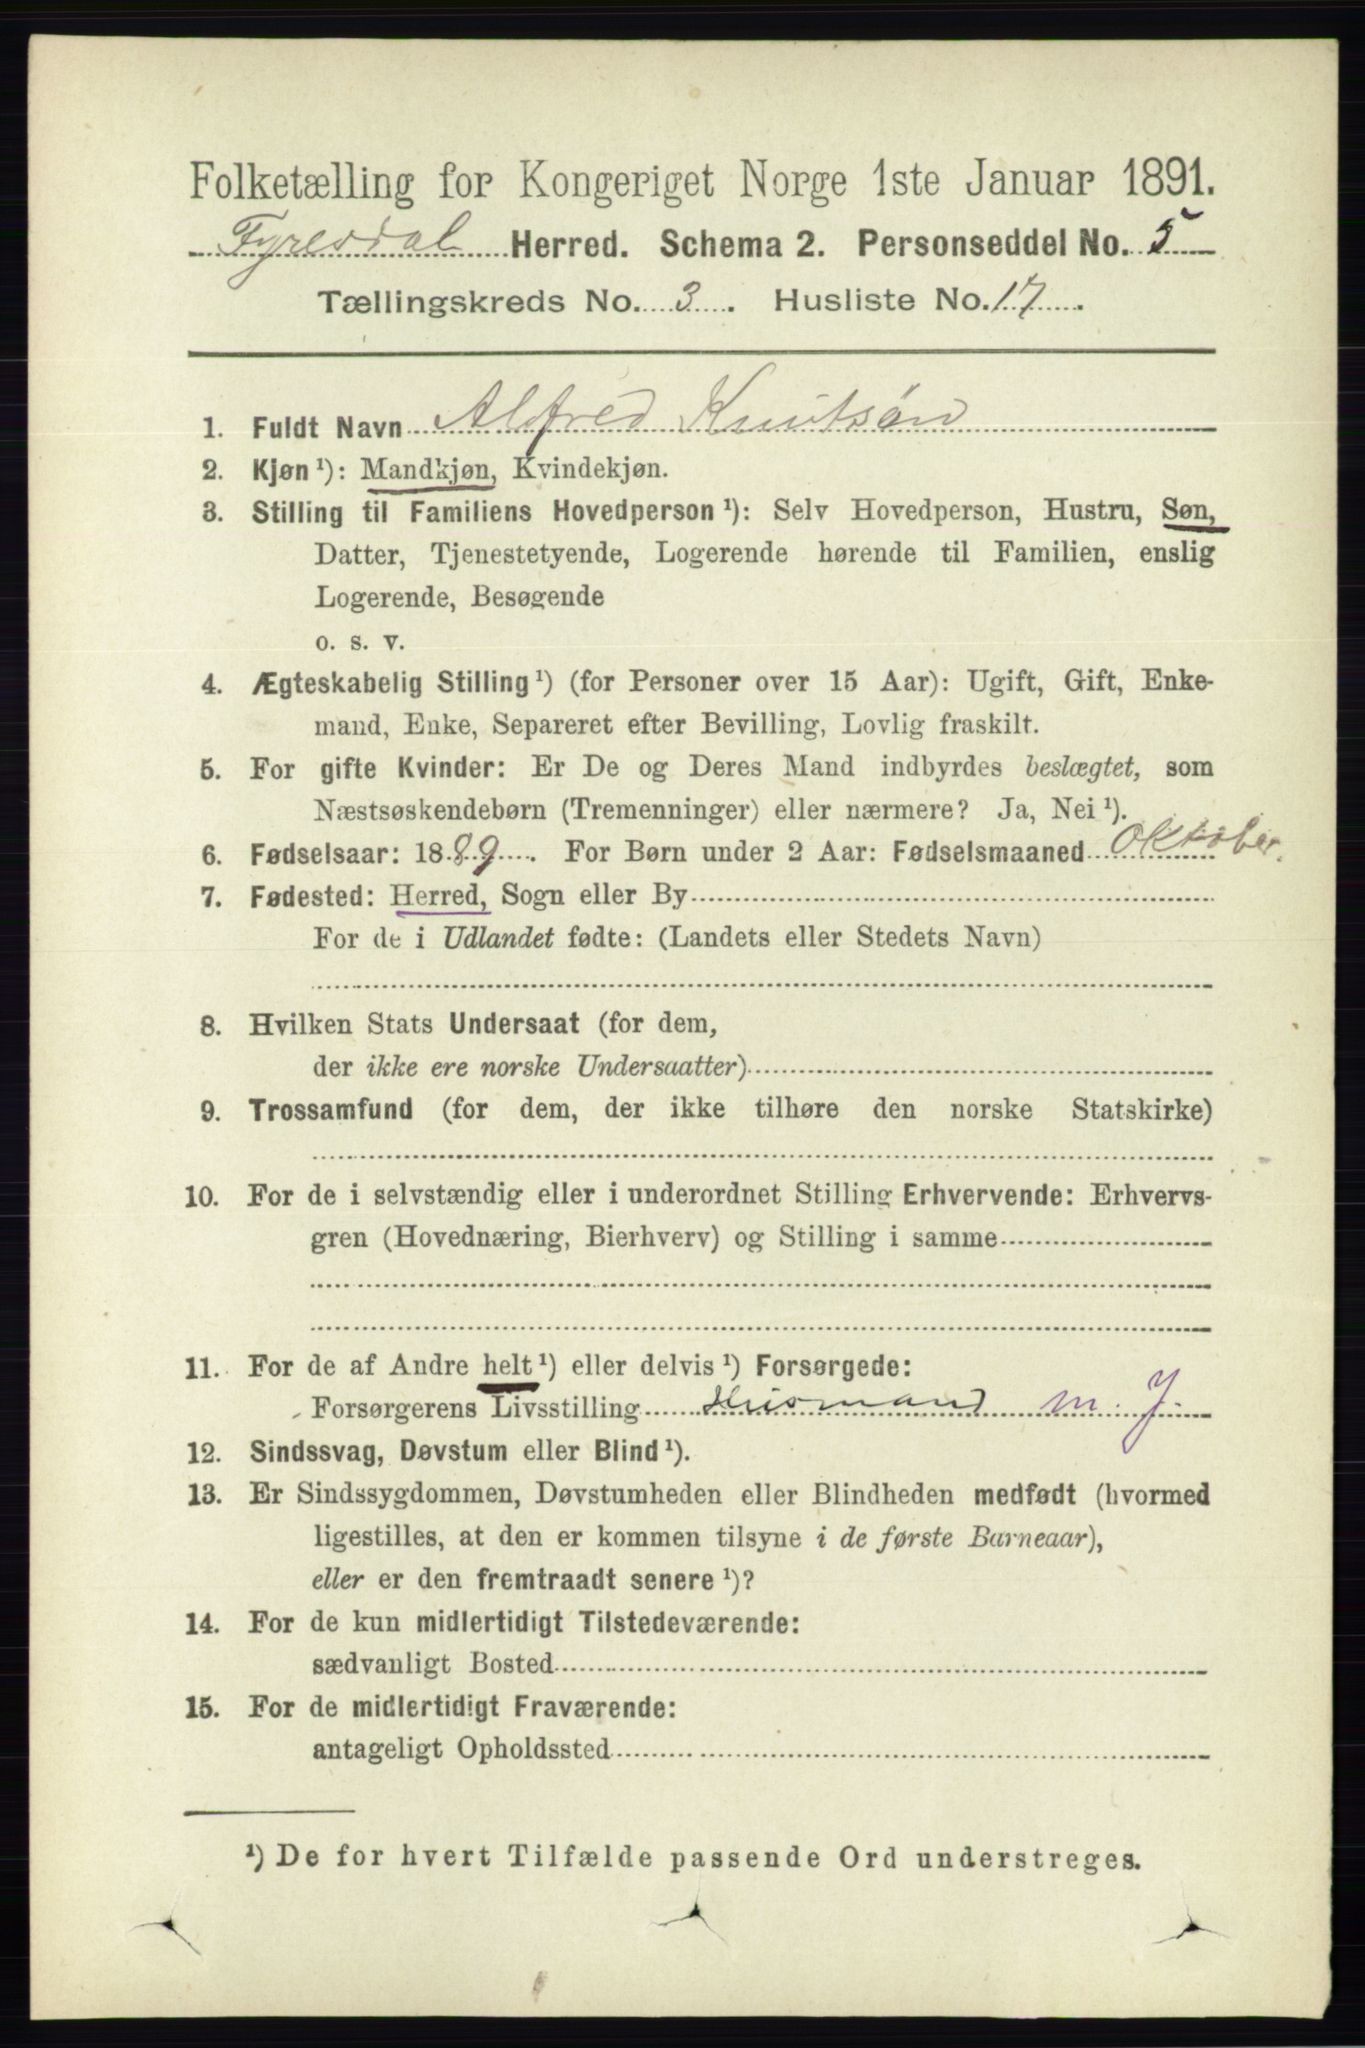 Folketælling for Kongeriget Norge 1ste Januar 1891.
Fyresdal Herred. Schema 2. Personseddel No. 5
Tællingskreds No. 3. Husliste No. 17.
1. Fuldt Navn Alfred Knutsøn
2. Kjøn ¹): Mandkjøn, Kvindekjøn.
3. Stilling til Familiens Hovedperson ¹): Selv Hovedperson, Hustru, Søn,
Datter, Tjenestetyende, Logerende hørende til Familien, enslig
Logerende, Besøgende
o. s. v.
4. Ægteskabelig Stilling ¹) (for Personer over 15 Aar): Ugift, Gift, Enke-
mand, Enke, Separeret efter Bevilling, Lovlig fraskilt.
5. For gifte Kvinder: Er De og Deres Mand indbyrdes beslægtet, som
Næstsøskendebørn (Tremenninger) eller nærmere? Ja, Nei ¹).
6. Fødselsaar: 1889. For Børn under 2 Aar: Fødselsmaaned Oktober.
7. Fødested: Herred, Sogn eller By
For de i Udlandet fødte: (Landets eller Stedets Navn)
8. Hvilken Stats Undersaat (for dem,
der ikke ere norske Undersaatter)
9. Trossamfund (for dem, der ikke tilhøre den norske Statskirke)
10. For de i selvstændig eller i underordnet Stilling Erhvervende: Erhvervs-
gren (Hovednæring, Bierhverv) og Stilling i samme
11. For de af Andre helt ¹) eller delvis ¹) Forsørgede:
Forsørgerens Livsstilling Husmand m. J.
12. Sindssvag, Døvstum eller Blind ¹).
13. Er Sindssygdommen, Døvstumheden eller Blindheden medfødt (hvormed
ligestilles, at den er kommen tilsyne i de første Barneaar),
eller er den fremtraadt senere ¹)?
14. For de kun midlertidigt Tilstedeværende:
sædvanligt Bosted
15. For de midlertidigt Fraværende:
antageligt Opholdssted
¹) De for hvert Tilfælde passende Ord understreges.